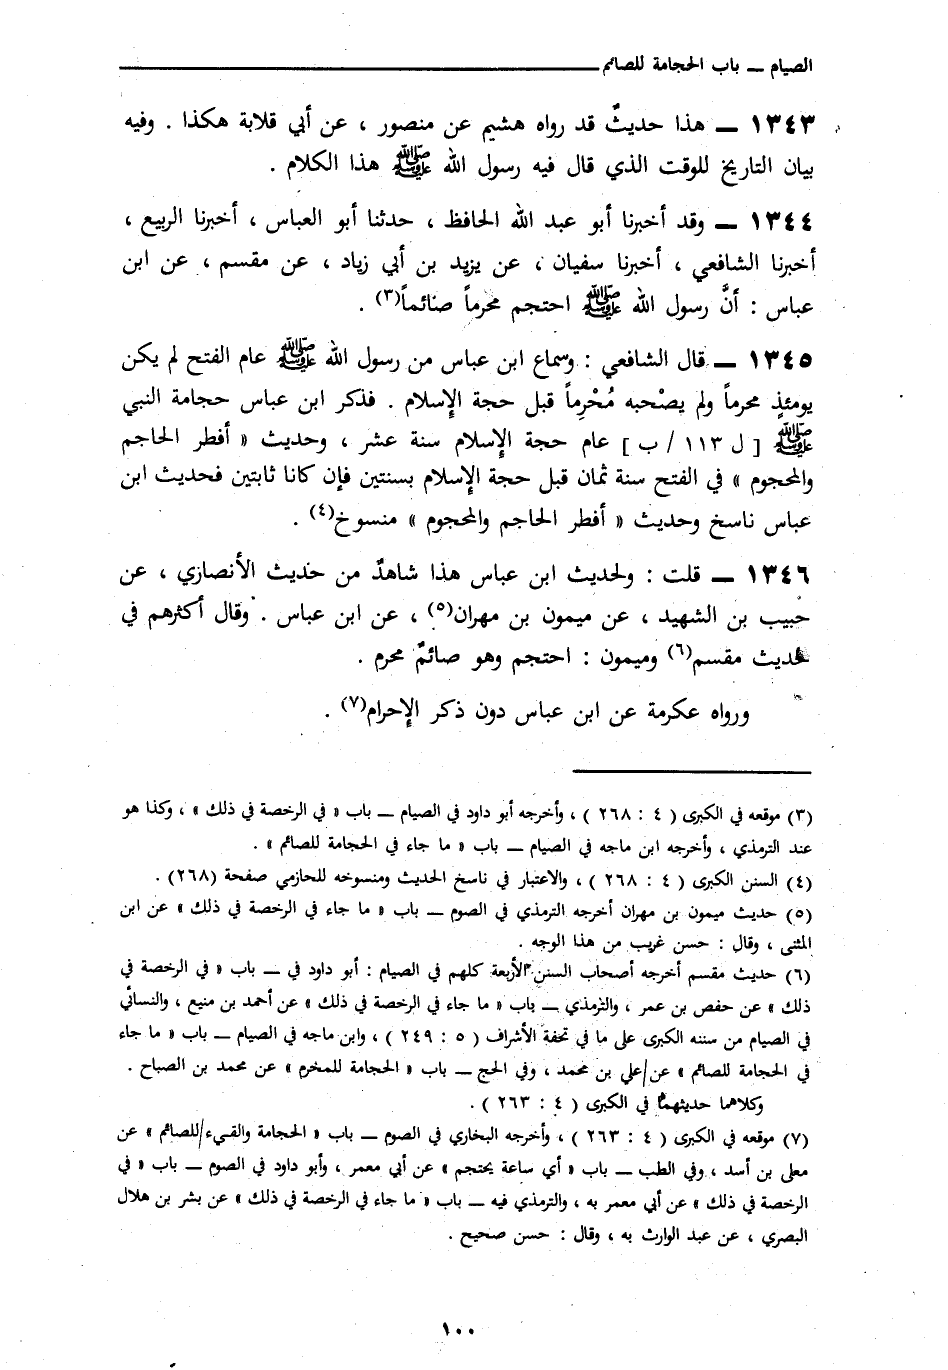 الصيام ــ باب الحجامة للصائم
١٣٤٣ ــ هذا حديثٌ قد رواه هشيم عن منصور ، عن أبي قلابة هكذا . وفيه
بيان التاريخ للوقت الذي قال فيه رسول الله ﷺ هذا الكلام .
١٣٤٤ ــ وقد أخبرنا أبو عبد الله الحافظ ، حدثنا أبو العباس ، أخبرنا الربيع ،
أخبرنا الشافعي ، أخبرنا سفيان ، عن يزيد بن أبي زياد ، عن مقسم ، عن ابن
عباس : أنَّ رسول الله ﷺ احتجم محرماً صائماً(٣) .
١٣٤٥ ــ قال الشافعي : وسماع ابن عباس من رسول الله ﷺ عام الفتح لم يكن
يومئذٍ محرماً ولم يصْحبه مُحْرِماً قبل حجة الإسلام . فذكر ابن عباس حجامة النبي
ﷺ [ ل ١١٣ / ب ] عام حجة الإسلام سنة عشر ، وحديث « أفطر الحاجم
والمحجوم » في الفتح سنة ثمان قبل حجة الإسلام بسنتين فإن كانا ثابتين فحديث ابن
عباس ناسخ وحديث « أفطر الحاجم والمحجوم » منسوخ(٤) .
١٣٤٦ ــ قلت : ولحديث ابن عباس هذا شاهدٌ من حديث الأنصاري ، عن
حبيب بن الشهيد ، عن ميمون بن مهران(٥) ، عن ابن عباس . وقال أكثرهم في
حديث مقسم(٦) وميمون : احتجم وهو صائمٌ محرم .
ورواه عكرمة عن ابن عباس دون ذكر الإحرام(٧) .
(٣) موقعه في الكبرى ( ٤ : ٢٦٨ ) ، وأخرجه أبو داود في الصيام ــ باب « في الرخصة في ذلك » ، وكذا هو
عند الترمذي ، وأخرجه ابن ماجه في الصيام ــ باب « ما جاء في الحجامة للصائم » .
(٤) السنن الكبرى ( ٤ : ٢٦٨ ) ، والاعتبار في ناسخ الحديث ومنسوخه للحازمي صفحة (٢٦٨) .
(٥) حديث ميمون بن مهران أخرجه الترمذي في الصوم ــ باب « ما جاء في الرخصة في ذلك » عن ابن
المثنى ، وقال : حسن غريب من هذا الوجه .
(٦) حديث مقسم أخرجه أصحاب السنن الأربعة كلهم في الصيام : أبو داود في ــ باب « في الرخصة في
ذلك » عن حفص بن عمر ، والترمذي ــ باب « ما جاء في الرخصة في ذلك » عن أحمد بن منيع ، والنسائي
في الصيام من سننه الكبرى على ما في تحفة الأشراف ( ٥ : ٢٤٩ ) ، وابن ماجه في الصيام ــ باب « ما جاء
في الحجامة للصائم » عن علي بن محمد ، وفي الحج ــ باب « الحجامة للمحرم » عن محمد بن الصباح .
وكلاهما حديثهما في الكبرى ( ٤ : ٢٦٣ ) .
(٧) موقعه في الكبرى ( ٤ : ٢٦٣ ) ، وأخرجه البخاري في الصوم ــ باب « الحجامة والقيء للصائم » عن
معلى بن أسد ، وفي الطب ــ باب « أي ساعة يحتجم » عن أبي معمر ، وأبو داود في الصوم ــ باب « في
الرخصة في ذلك » عن أبي معمر به ، والترمذي فيه ــ باب « ما جاء في الرخصة في ذلك » عن بشر بن هلال
البصري ، عن عبد الوارث به ، وقال : حسن صحيح .
١٠٠